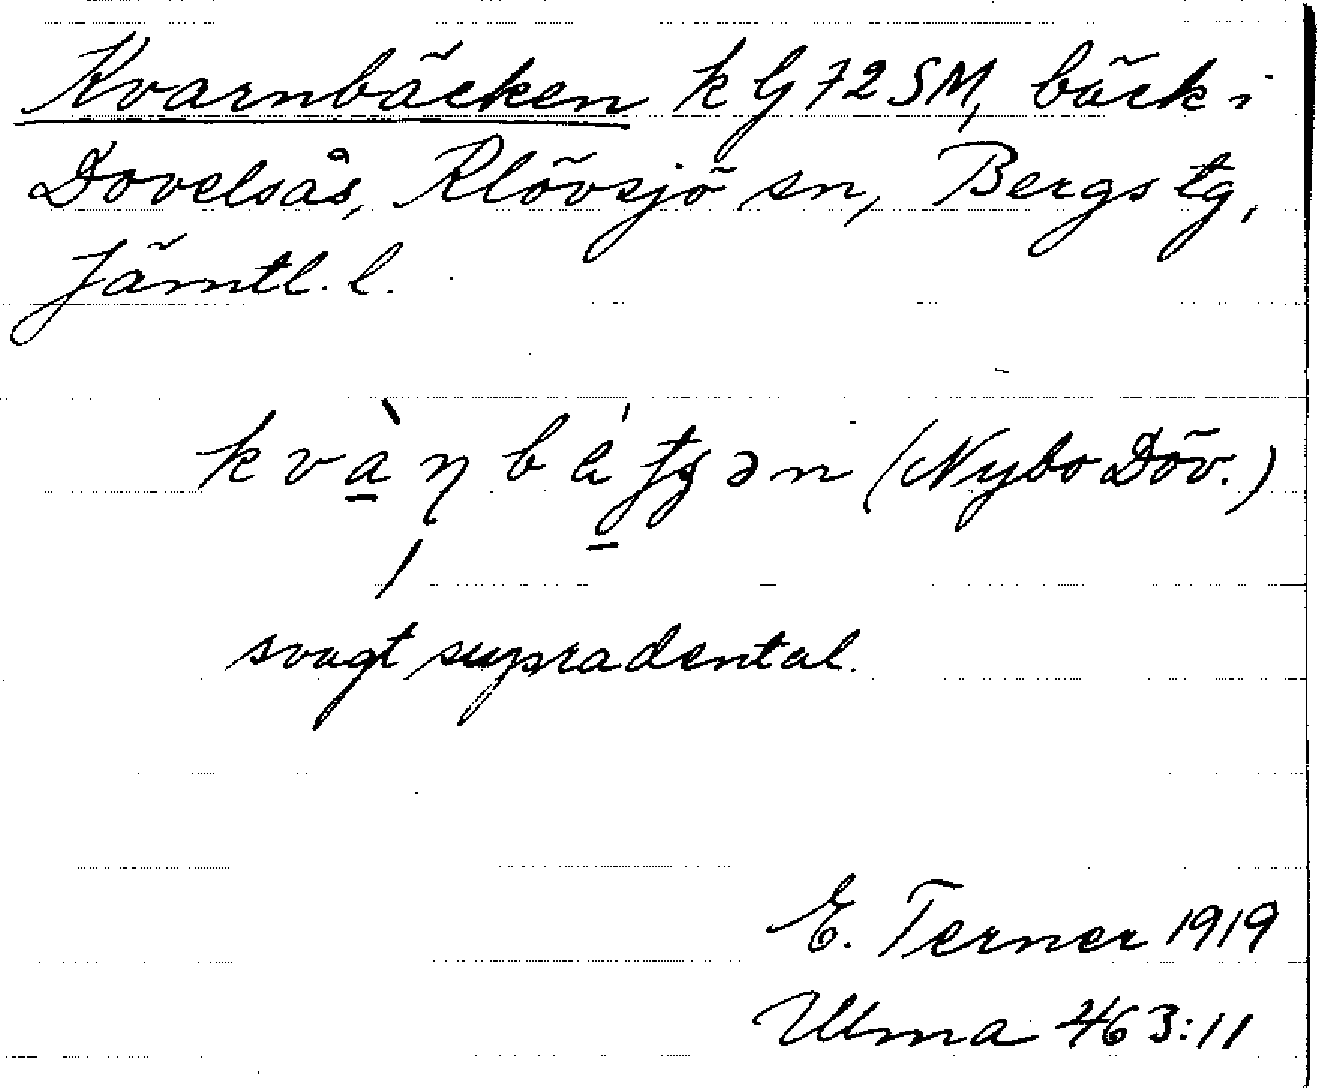 Kvarnbäcken k G 72 SM, bäck i
Dovelsås, Klövsjö sn, Bergs tg,
Jämtl. l.
(Nybo Döv.)
svagt supradental.
E. Terner 1919
Ulma 463:11